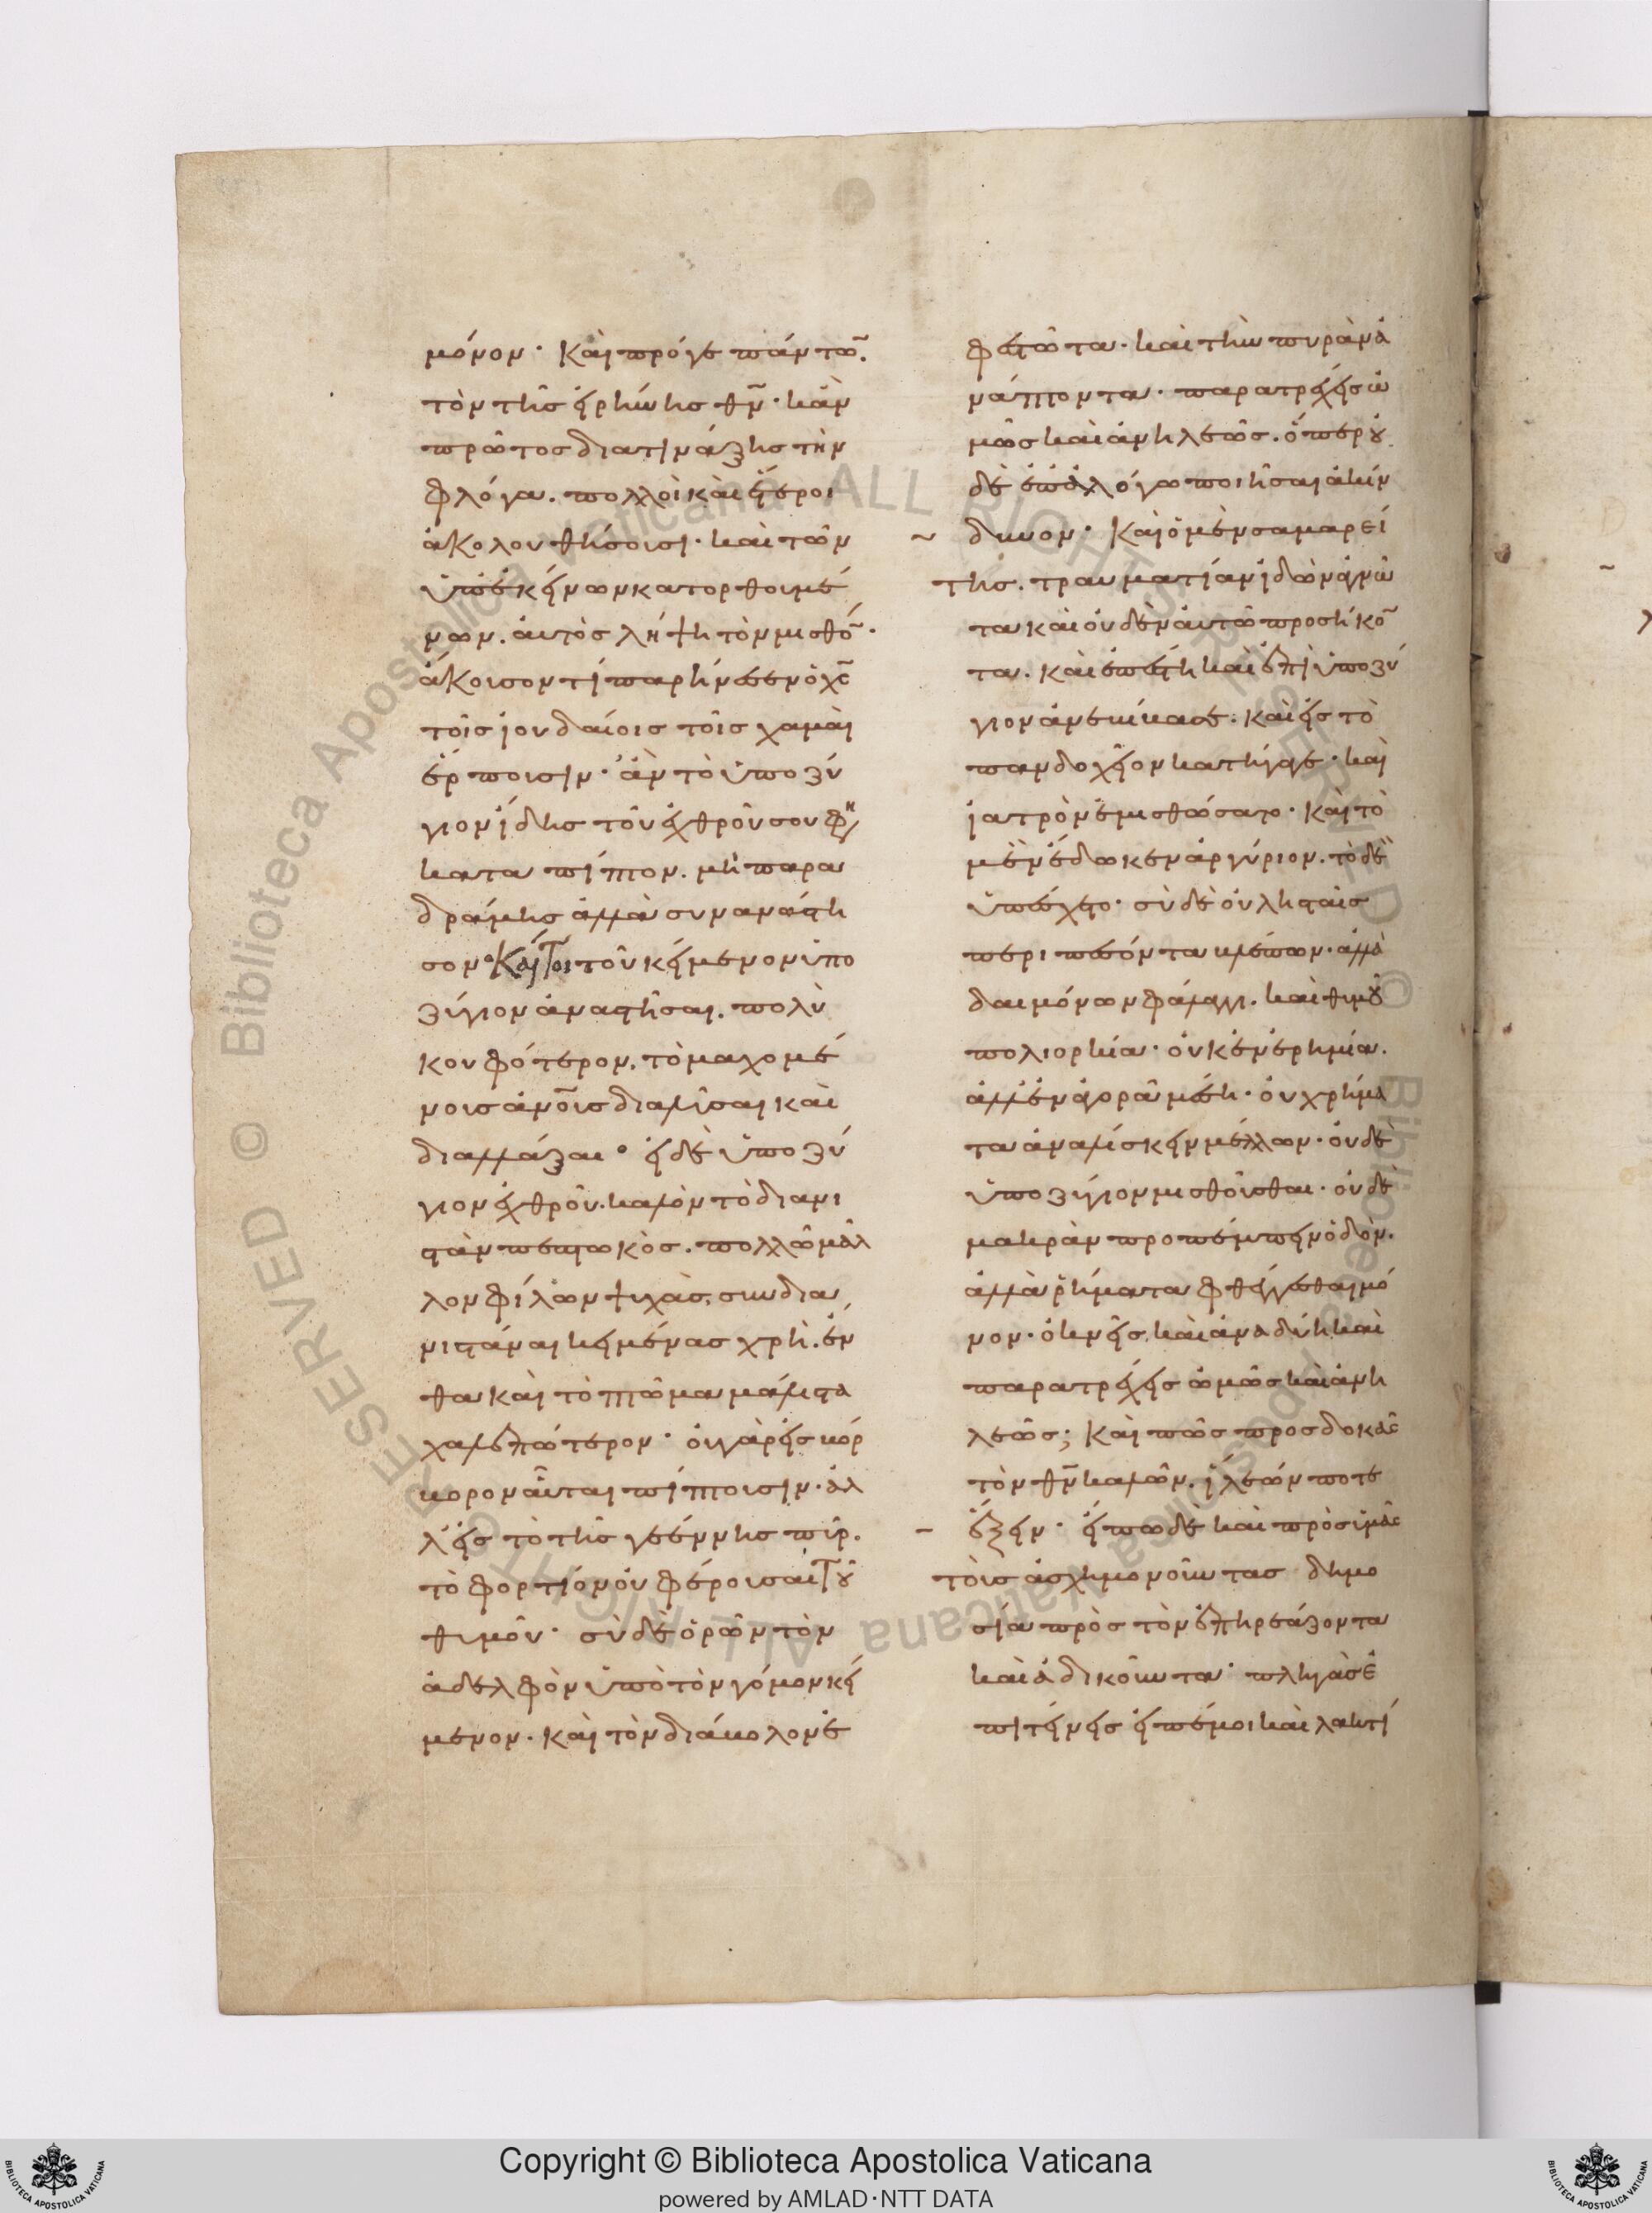 μόνον· Καὶ πρόγε πάντω̅.
τὸν τῆς ἐιρήνης θ̅ν· κἂν
πρῶτος διατινάξης τὴν
φλόγα. πολλοὶ καὶ ἕτεροι
ἀκολουθήσουσι· καὶ τῶν
ὑπ' ἐκείνων κατορθουμέ
νων. ἀυτὸς λήψη τὸν μισθό̅·
ἄκουσον τί παρήνεσεν ὁ χ̅ς
τοῖς ἰουδαίοις τοῖς χαμαὶ
ἕρπουσιν· ἂν τὸ ὑποζύ
γιον ἴδης τοῦ ἐχθροῦ σου φη
καταπίπτον. μὴ παρα
δράμης ἀλλὰ συνανάστη
σον· Καίτοι τοῦ κείμενον ὑπο
ζύγιον ἀναστῆσαι. πολὺ
κουφότερον. τὸ μαχομέ
νους ἀν̅ους διαλῦσαι καὶ
διαλλάξαι· ἐι δὲ ὑποζύ
γιον ἐχθροῦ. καλὸν τὸ διανι
στᾶν πεπτωκὸς. πολλῶ μᾶλ
λον φίλων ψυχὰς. συνδια
νιστάναι κειμένας χρὴ. ἔν
θα καὶ τὸ πτῶμα μάλιστα
χαλεπώτερον· ὀυ γὰρ ἐις βόρ
βορον ἁῦται πίπτουσιν. ἀλ
λ' ἐις τὸ τῆς γεέννης πῦρ.
τὸ φορτίον ὀυ φέρουσαι τοῦ
θυμοῦ· σὺ δὲ ὁρῶν τὸν
ἀδελφὸν ὑπὸ τὸν γόμον κεί
μενον. καὶ τὸν διάβολον ἐ
φεστῶτα. καὶ τὴν πυρὰν ἀ
νάπτοντα. παρατρέχεις ὠ
μῶς καὶ ἀνηλεῶς. ὅπερ οὐ
δὲ ἐπ' ἀλόγω ποιῆσαι ἀκίν
δυνον· Καὶ ὁ μὲν σαμαρεί
της. τραυματίαν ἰδὼν ἀγνῶ
τα καὶ ὀυδὲν ἀυτῶ προσήκο̅
τα. καὶ ἐπέστη καὶ ἐπὶ ὑποζύ
γιον ἀνεβίβασε. καὶ ἐις τὸ
πανδοχεῖον κατήγαγε. καὶ
ἰατρὸν ἐμισθώσατο· Καὶ τὸ
μὲν ἔδωκεν ἀργύριον. τὸ δὲ
ὑπέσχετο· σὺ δὲ ὀυ λησταῖς
περιπεσόντα βλέπων. ἀλλὰ
δαιμόνων φάλαγγι. καὶ θυμοῦ
πολιορκία· ὀυκ ἐν ἐρημία.
ἀλλ' ἐν ἀγορᾶ μέση· ὀυ χρήμα
τα ἀναλίσκειν μέλλων· ὀυδὲ
ὑποζύγιον μισθοῦσθαι· ὀυδὲ
μακρὰν προπέμπειν ὁδὸν.
ἀλλὰ ῥήματα φθέγγεσθαι μό
νον· ὀκνεῖς καὶ ἀναδύη καὶ
παρατρέχεις ὠμῶς καὶ ἀνη
λεῶς; Καὶ πῶς προσδοκᾶς
τὸν θ̅ν καλῶν. ἵλεών ποτε
ἕξειν· ἐίπω δὲ καὶ πρὸς ὑμᾶς
τοὺς ἀσχημονοῦντας δημο
σία πρὸς τὸν ἐπηρεάζοντα
καὶ ἀδικοῦντα· πληγὰς ἐ
πιτείνεις ἐιπέ μοι καὶ λακτί